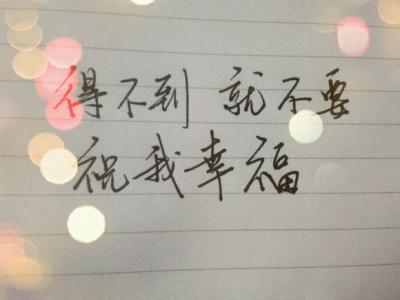 得不到 就不要
祝我幸福